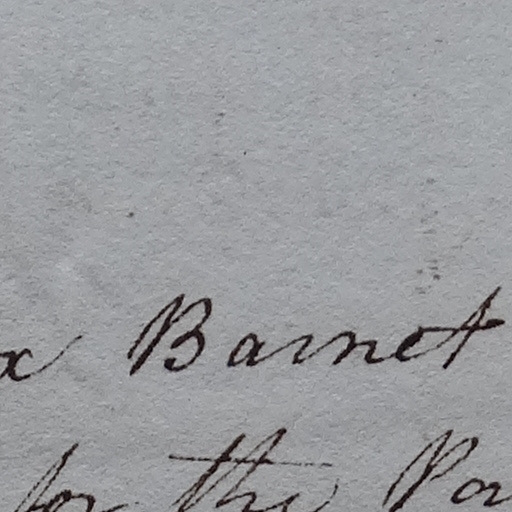 x Barnet
for the Par